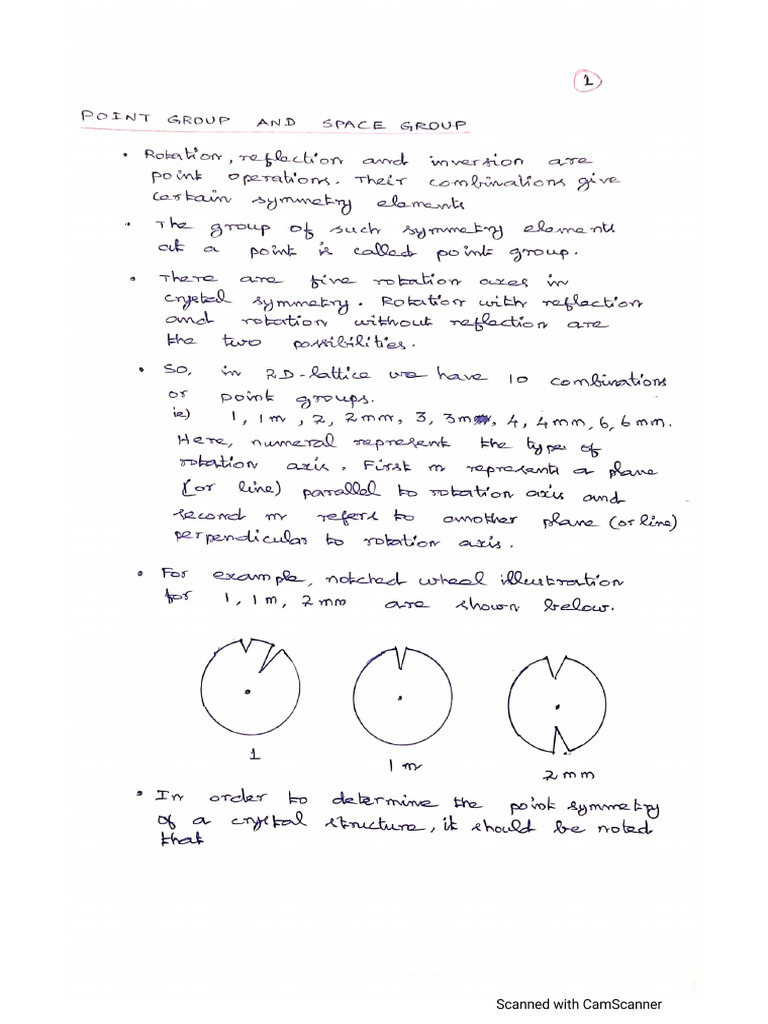 1
POINT GROUP AND SPACE GROUP
• Rotation, reflection and inversion are
point operations. Their combinations give
certain symmetry elements
• The group of such symmetry elements
at a point is called point group.
• There are five rotation axes in
crystal symmetry. Rotation with reflection
and rotation without reflection are
the two possibilities.
• So, in 2D-lattice we have 10 combinations
or point groups.
ie) 1, 1m, 2, 2mm, 3, 3m, 4, 4mm, 6, 6mm.
Here, numeral represent the type of
rotation axis. First m represents a plane
(or line) parallel to rotation axis and
second m refers to another plane (or line)
perpendicular to rotation axis.
• For example, notched wheel illustration
for 1, 1m, 2mm are shown below.
1
1m
2mm
• In order to determine the point symmetry
of a crystal structure, it should be noted
that
Scanned with CamScanner